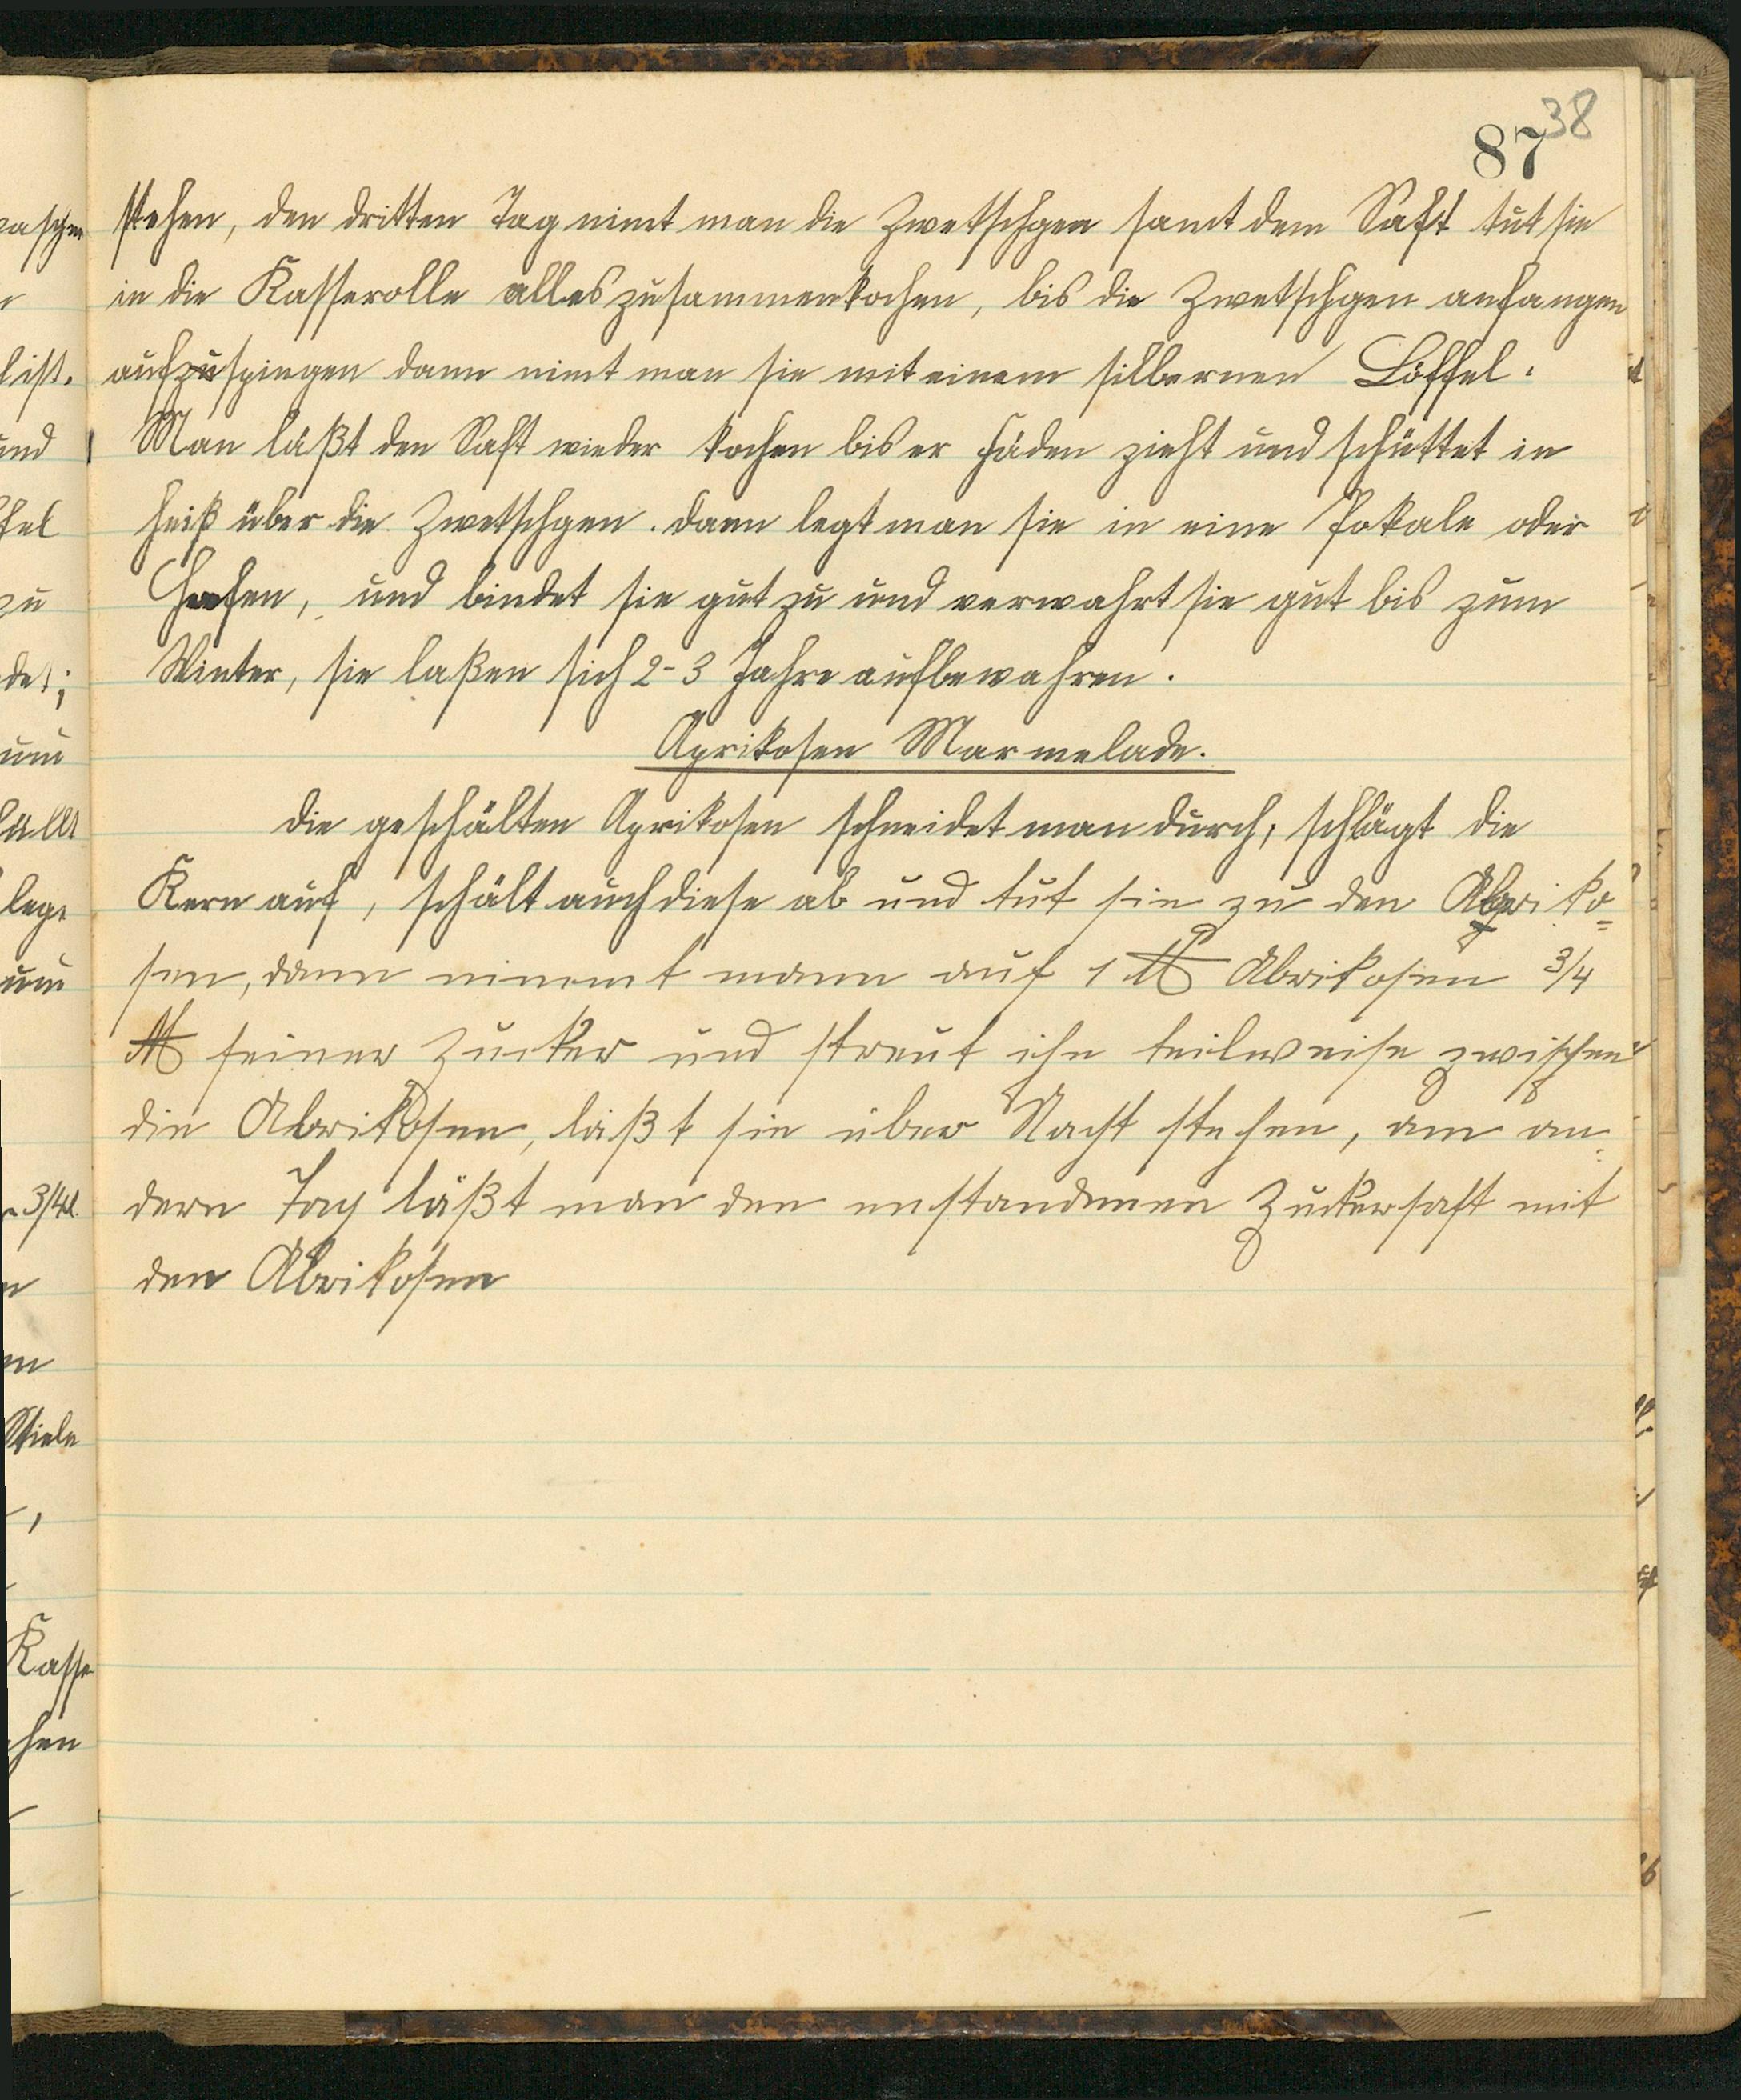 38
87
stehen, den dritten Tag nimt man die Zwetschgen samt dem Saft tut sie
in die Kasserolle alles zusammenkochen, bis die Zwetschgen anfangen
aufzuspingen dann nimt man sie mit einem silbernen Löffel.
Man läßt den Saft wieder kochen bis er Fäden zieht und schüttet in
heiß über die Zwetschgen. dann legt man sie in eine Pokale oder
Hafen, und bindet sie gut zu und verwahrt sie gut bis zum
Winter, sie laßen sich 2-3 Jahre aufbewahren.
Aprikosen Marmelade.
die geschälten Aprikosen schneidet man durch, schlägt die
Kern auf, schält auch diese ab und tut sie zu den Apriko=
sen, dann nimmt mann auf 1 ℔ Abrikosen 3/4
℔ feiner Zucker und streut ihn teilweise zwischen
die Abrikosen, läßt sie über Nacht stehen, am an=
dern Tag läßt man den enstandenen Zuckersaft mit
den Abrikosen